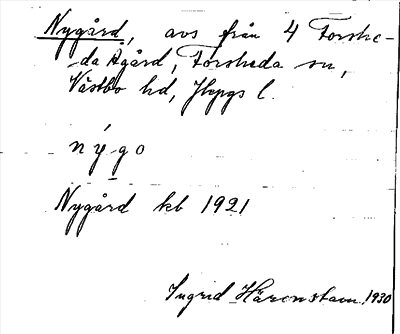 Nygård, avs från 4 Forshe-
da Ågård, Forsheda sn,
Västbo hd, Jkpgs l.
ný-go
Nygård kb 1921
Ingrid Härenstam 1930